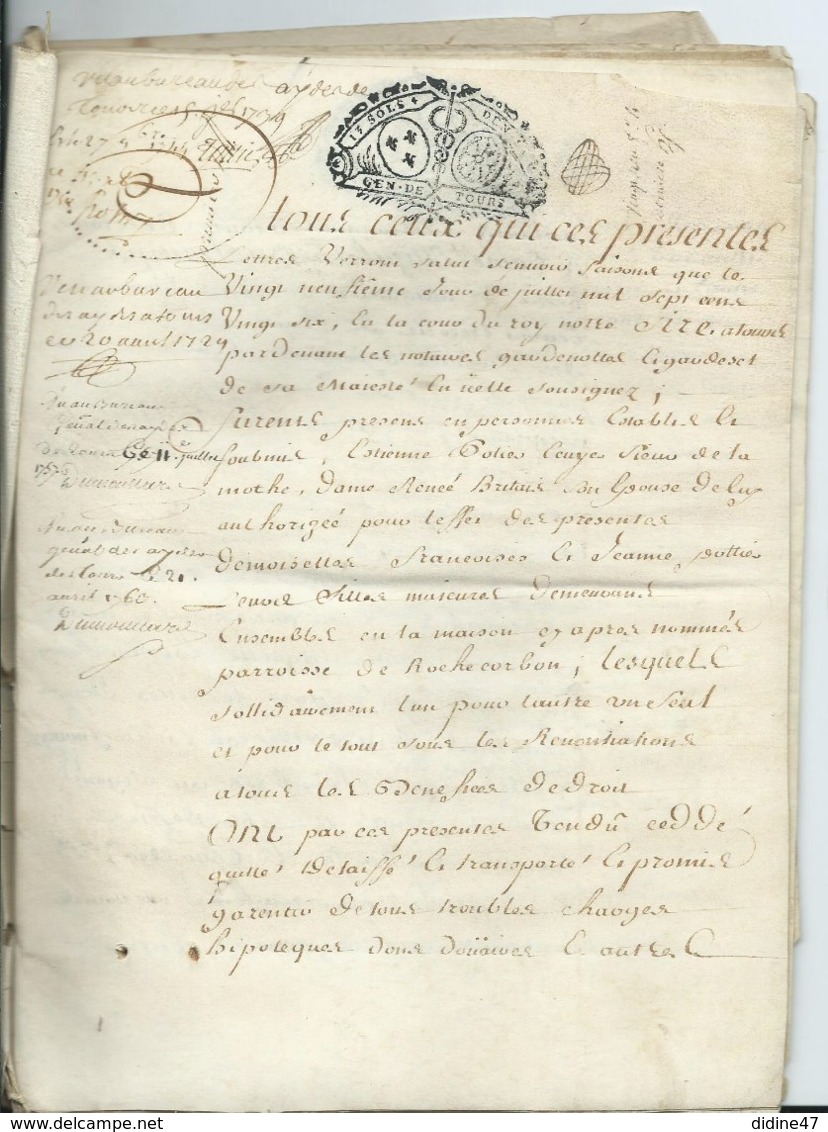 vu au bureau des aydes de
Tours 1729
13 SOLS 4 DEN
GEN · DE TOURS
A tous ceux qui ces presentes
Lettres Verront salut scavoir faisons que le
Vingt neufiême Jour de juillet mil sept cens
Vingt six, En la cour du roy notre Sire atours
pardevant les notaires gardenottes Et gardescel
de sa Majesté En icelle soussignez ;
furent presens en personnes Establis Et
soubmis, Estienne Sieur de la
mothe, dame Renée Son Epouse de luy
authorizée pour leffet des presentes
demoiselles françoises Et Jeanne
filles majeures demeurans
Ensembles en la maison cy apres nommée
parroisse de Rochecorbon ; lesquels
sollidairement lun pour lautre un seul
et pour le tout sous les Renontiations
atous les Benefices de droit
ONT par ces presentes Vendû ceddé
quitté Delaissé Et transporté Et promis
garentir de tous troubles charges
hipoteques dons doüaires Et autres
Veu au bureau
des aydes atours
ce 20 avril 1729
Vu au Bureau
general des aydes
de Tours Ce 11 juillet
Vu au Bureau
general des aydes
de Tours le 21
avril 1760
didine47